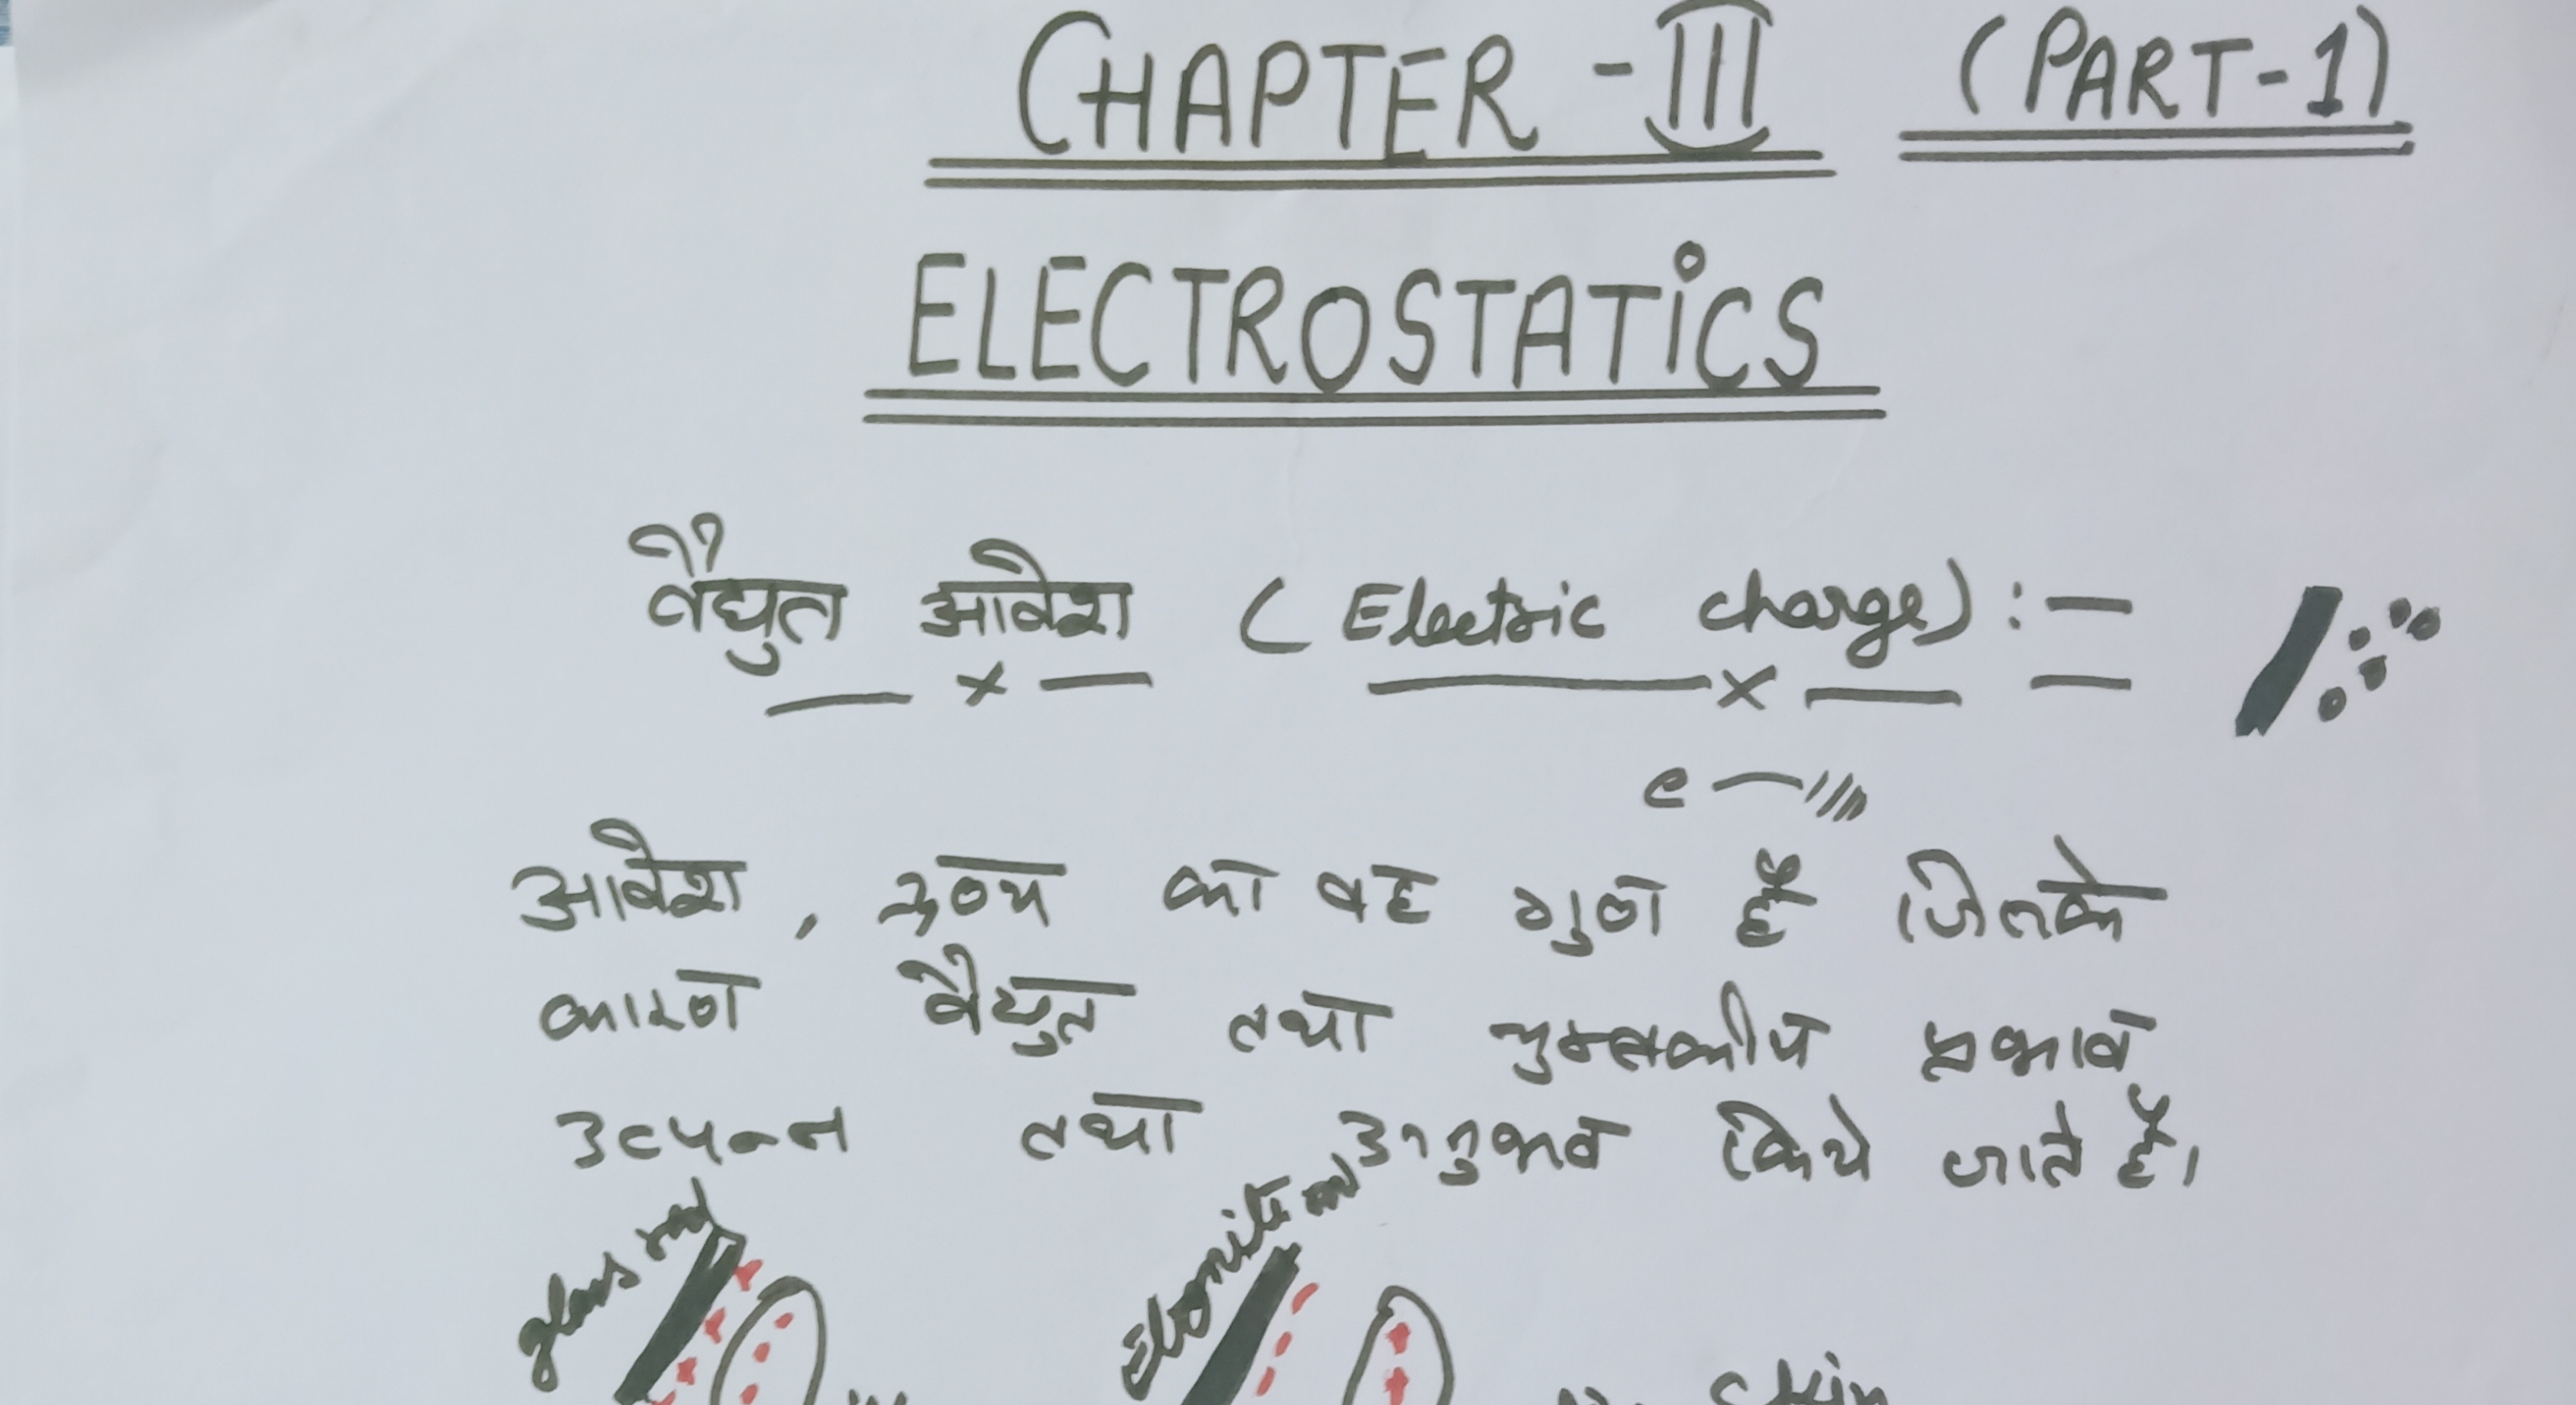 CHAPTER - III (PART-1)
ELECTROSTATiCS
वैद्युत आवेश (Electric charge) : —
e —
आवेश , द्रव्य का वह गुण हैं जिसके
कारण वैद्युत तथा चुम्बकीय प्रभाव
उत्पन्न तथा अनुभव किये जाते हैं।
glass rod Ebonite rod
skin